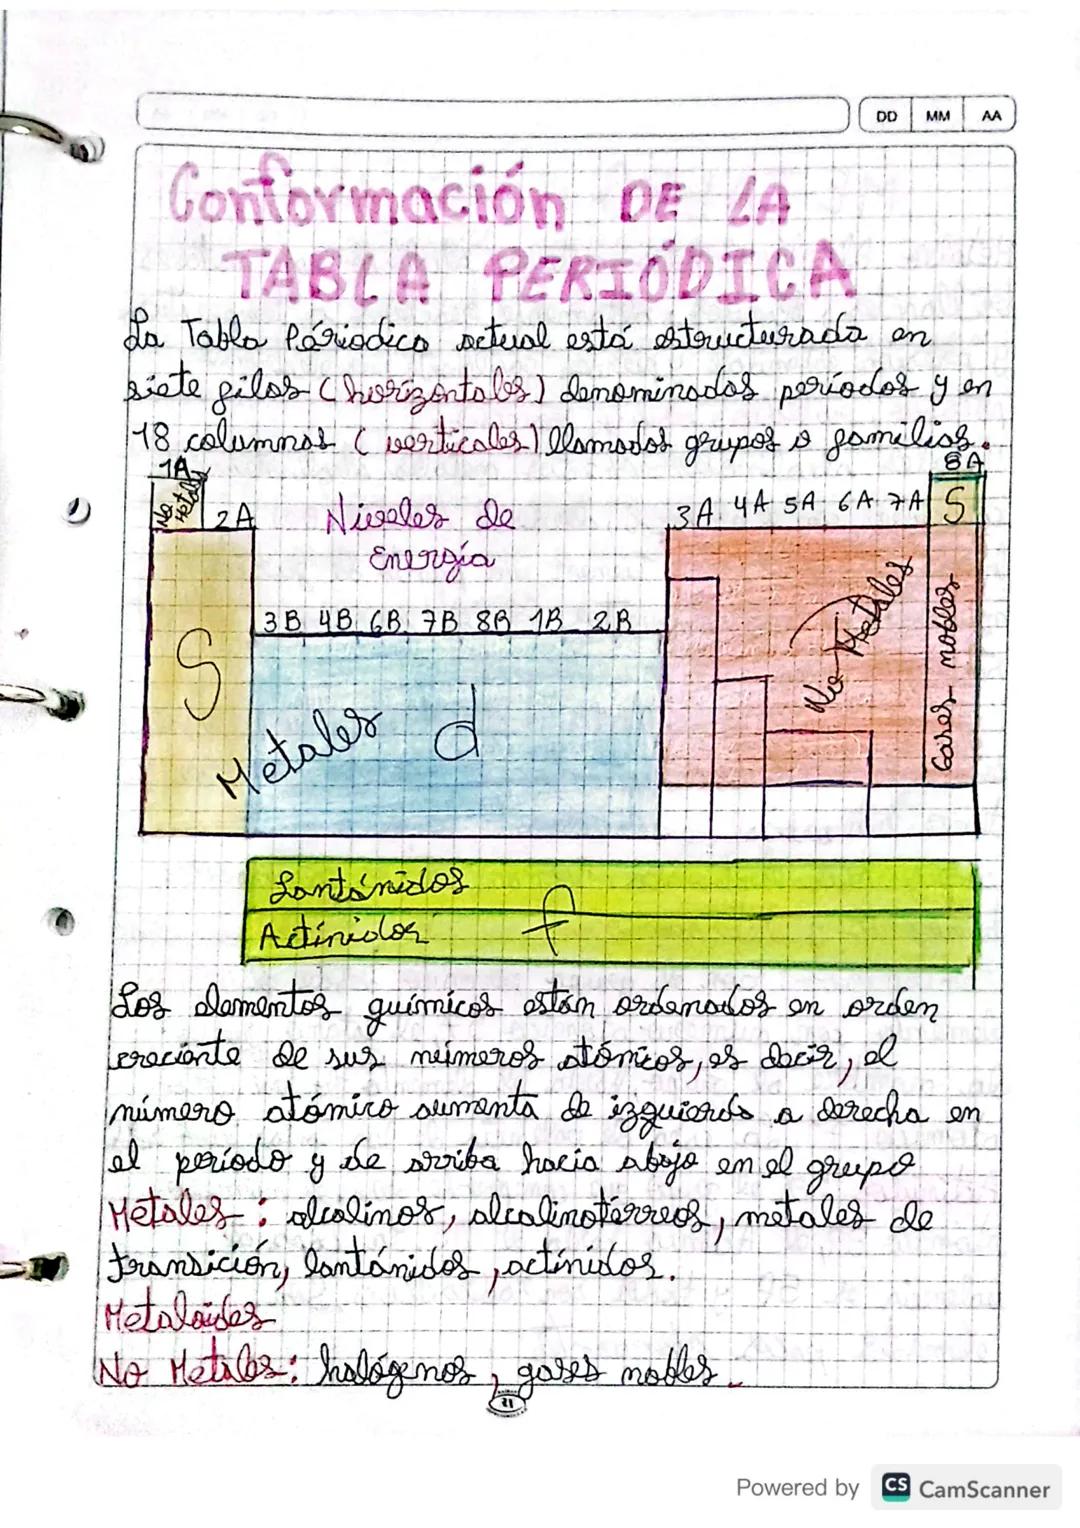 DD MM AA
Conformación DE LA
TABLA PERIÓDICA
La Tabla Páriodica actual está estructurada en
siete filas (horizontales) denominados períodos y en
18 columnas (verticales) llamados grupos o familias.
1A 8A
No Metales 2A Niveles de 3A 4A 5A 6A 7A S
Energía
3B 4B 6B 7B 8B 1B 2B
S Metales d No Metales Gases nobles
Lantánidos
Actínidos f
Los elementos químicos están ordenados en orden
creciente de sus números atómicos, es decir, el
número atómico aumenta de izquierda a derecha en
el período y de arriba hacia abajo en el grupo
Metales: alcalinos, alcalinotérreos, metales de
transición, lantánidos, actínidos.
Metaloides
No Metales: halógenos, gases nobles.
21
Powered by CS CamScanner